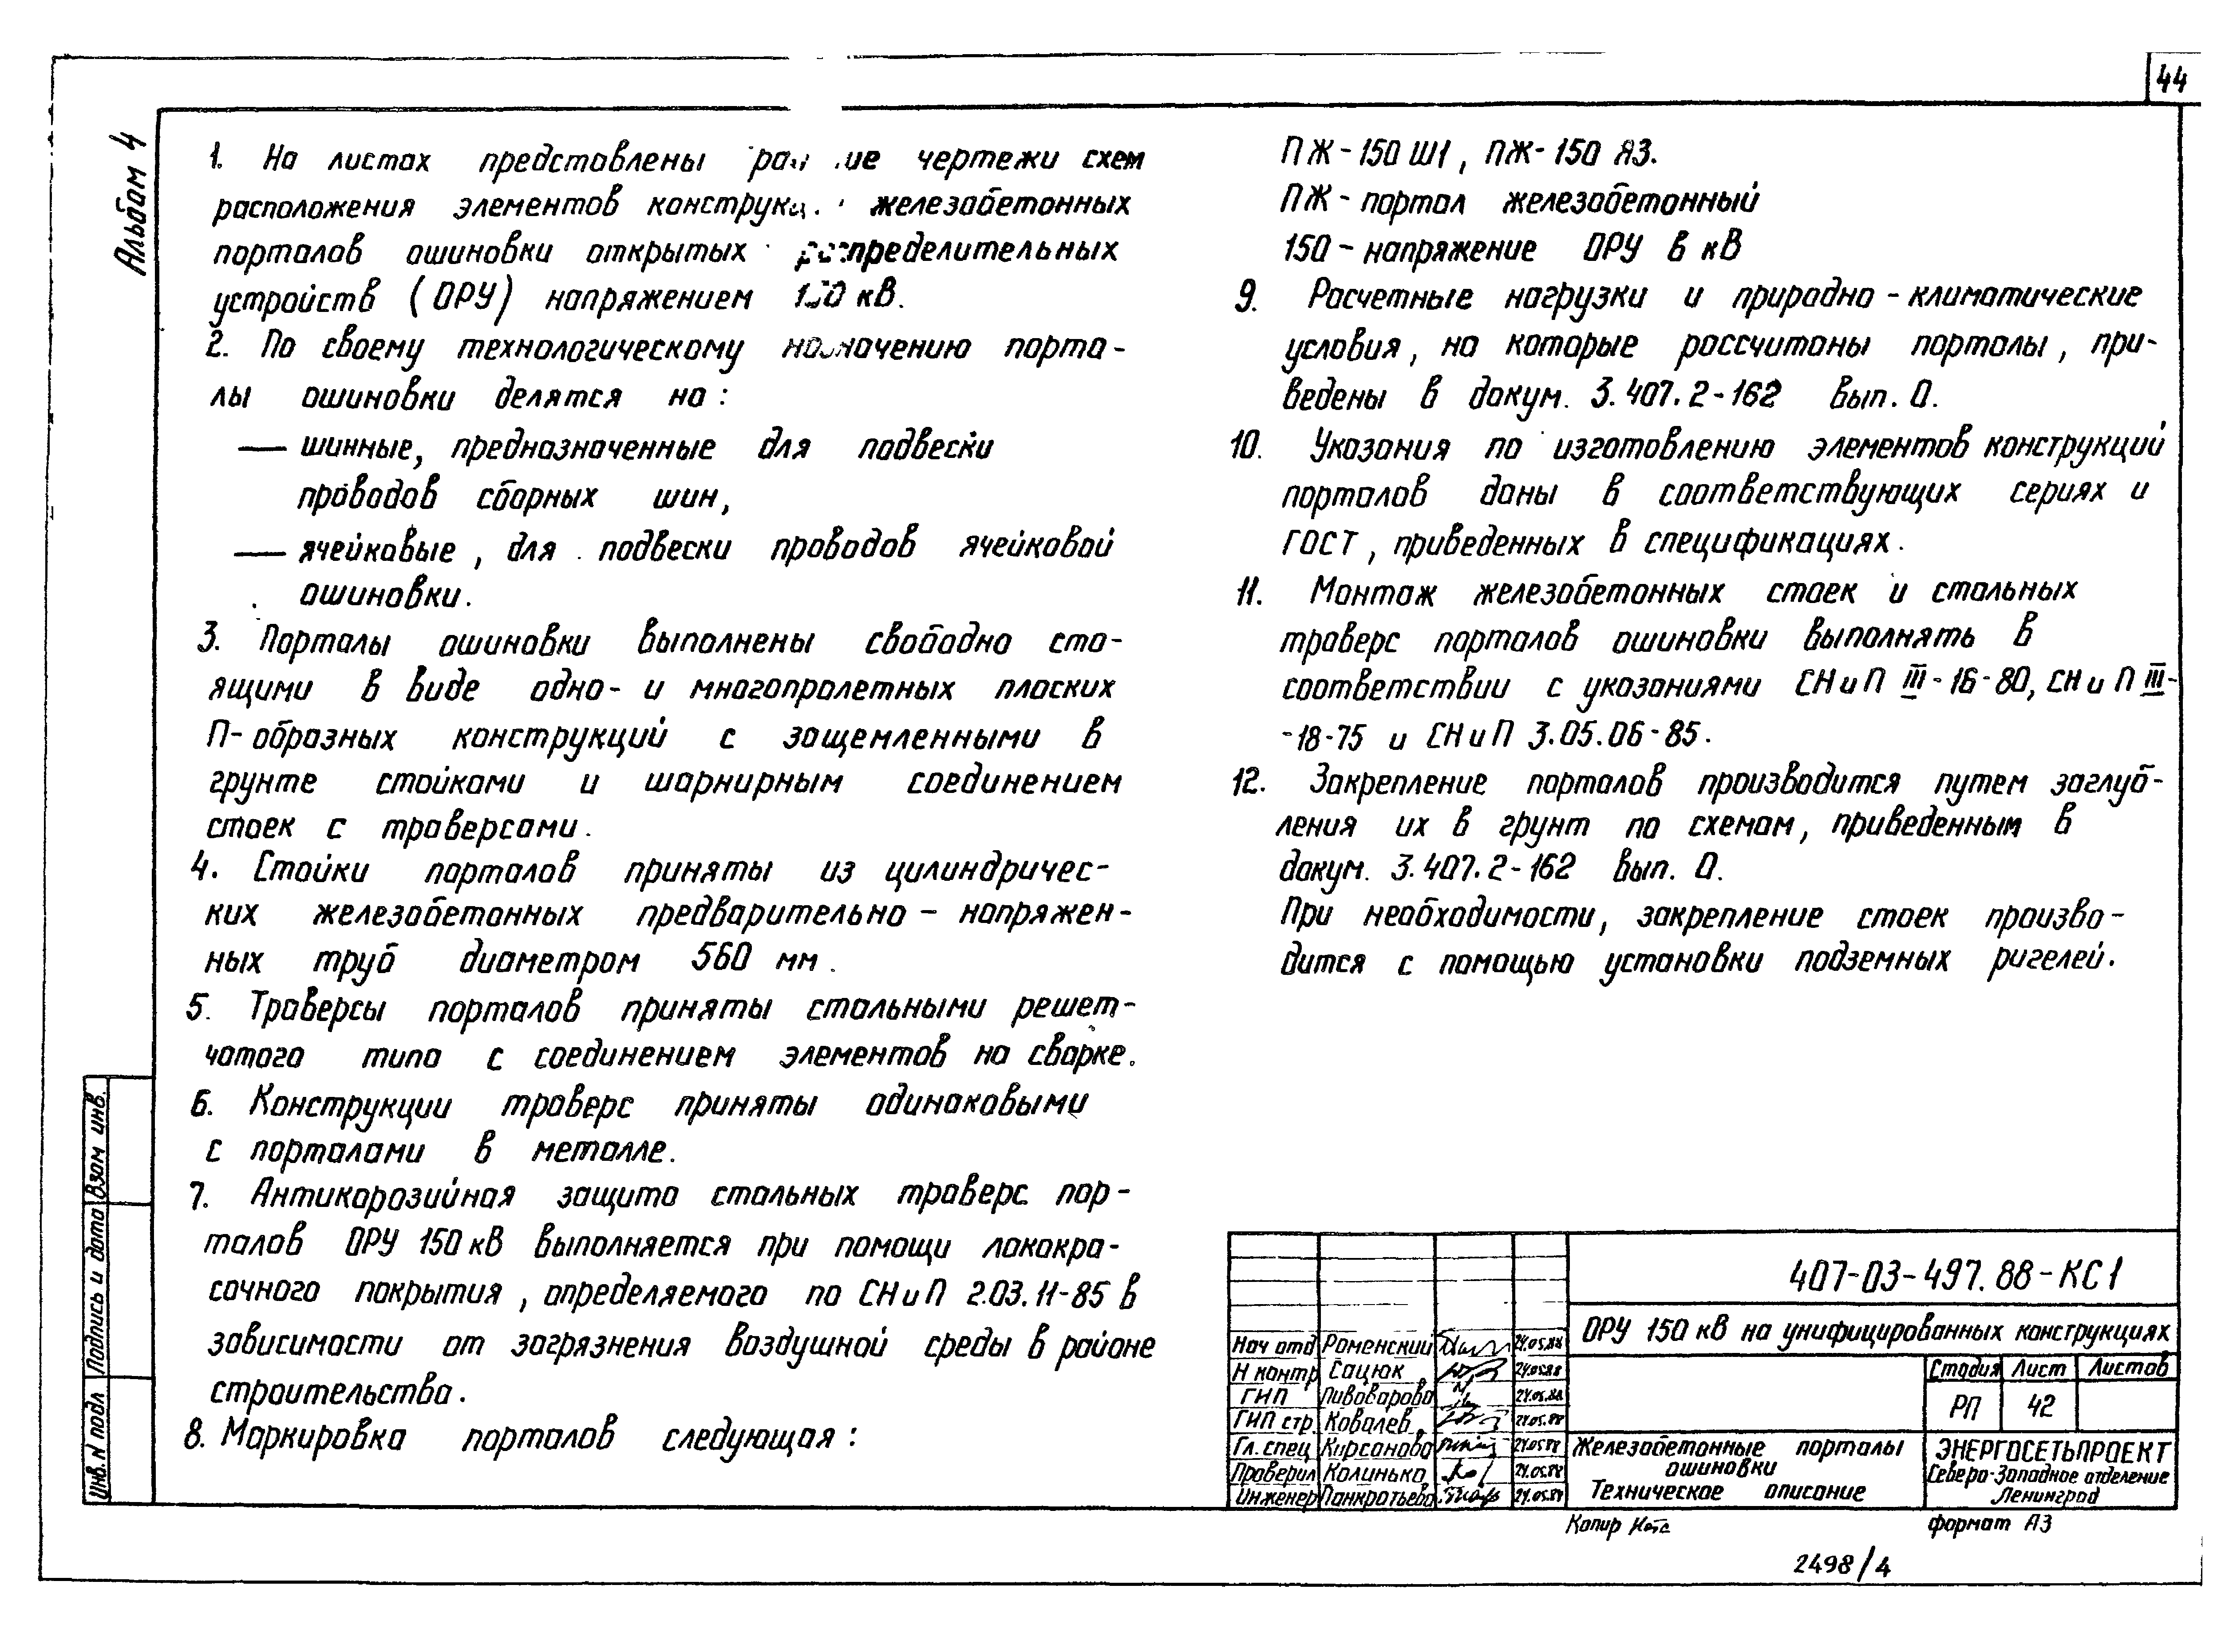 44
Альбом 4
1. На листах представлены чертежи схем
расположения элементов железобетонных
порталов ошиновки открытых распределительных
устройств (ОРУ) напряжением 150 кВ.
2. По своему технологическому назначению порта-
лы ошиновки делятся на:
— шинные, предназначенные для подвески
проводов сборных шин,
— ячейковые, для подвески проводов ячейковой
ошиновки.
3. Порталы ошиновки выполнены свободно сто-
ящими в виде одно- и многопролетных плоских
П-образных конструкций с защемленными в
грунте стойками и шарнирным соединением
стоек с траверсами.
4. Стойки порталов приняты из цилиндричес-
ких железобетонных предварительно-напряжен-
ных труб диаметром 560 мм.
5. Траверсы порталов приняты стальными решет-
чатого типа с соединением элементов на сварке.
6. Конструкции траверс приняты одинаковыми
с порталами в металле.
7. Антикорозийная защита стальных траверс пор-
талов ОРУ 150 кВ выполняется при помощи лакокра-
сочного покрытия, определяемого по СНиП 2.03.11-85 в
зависимости от загрязнения воздушной среды в районе
строительства.
8. Маркировка порталов следующая:
ПЖ-150 Ш1, ПЖ-150 Я3.
ПЖ - портал железобетонный
150 - напряжение ОРУ в кВ
9. Расчетные нагрузки и природно-климатические
условия, на которые рассчитаны порталы, при-
ведены в докум. 3.407.2-162 вып. 0.
10. Указания по изготовлению элементов конструкций
порталов даны в соответствующих сериях и
ГОСТ, приведенных в спецификациях.
11. Монтаж железобетонных стоек и стальных
траверс порталов ошиновки выполнять в
соответствии с указаниями СНиП III-16-80, СНиП III-
-18-75 и СНиП 3.05.06-85.
12. Закрепление порталов производится путем заглуб-
ления их в грунт по схемам, приведенным в
докум. 3.407.2-162 вып. 0.
При необходимости, закрепление стоек произво-
дится с помощью установки подземных ригелей.
Взам инв.
Подпись и дата
Инв. N подл
407-03-497.88-КС1
ОРУ 150 кВ на унифицированных конструкциях
Нач отд Роменский 24.05.88
Н контр Сацюк 24.05.88
ГИП Пивоварова 24.05.88
ГИП стр. Ковалев 24.05.88
Гл. спец Кирсанова 24.05.88
Проверил Калинько 24.05.88
Инженер Панкратьева 24.05.88
Стадия Лист Листов
РП 42
Железобетонные порталы
ошиновки
Техническое описание
ЭНЕРГОСЕТЬПРОЕКТ
Северо-Западное отделение
Ленинград
Копир
формат А3
2498/4